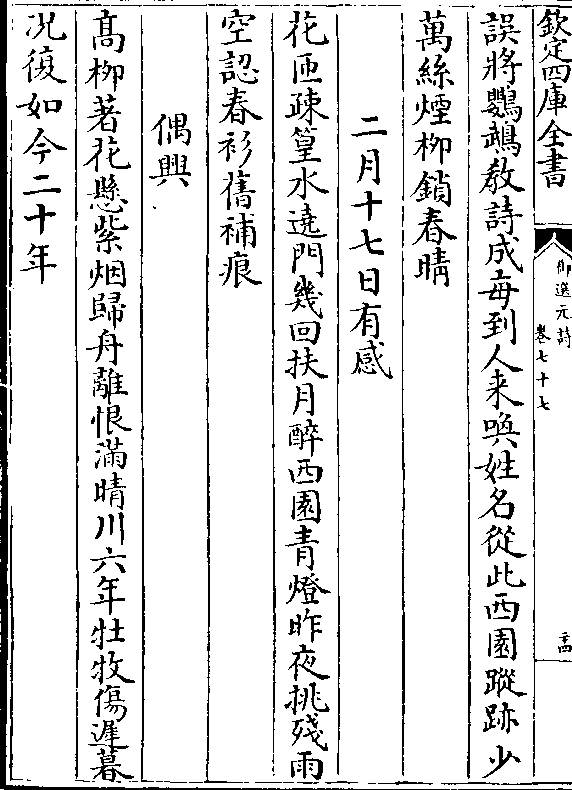 欽定四庫全書
御選元詩
卷七十七
二十四
誤將鸚鵡教詩成每到人来喚姓名從此西園蹤跡少
萬絲煙柳鎖春晴
二月十七日有感
花匝疎篁水遶門幾回扶月醉西園青燈昨夜挑殘雨
空認春衫舊補痕
偶興
髙柳著花懸紫烟歸舟離恨滿晴川六年牡牧傷遲暮
况復如今二十年